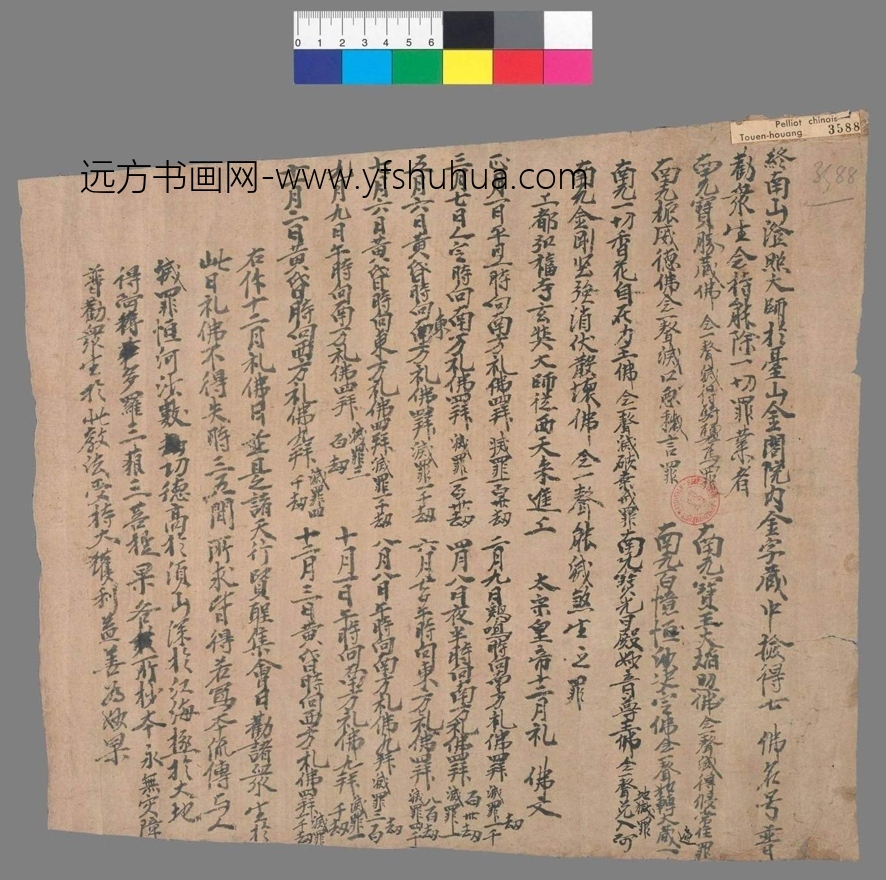 Pelliot chinois
Touen-houang 3588
3588
0 1 2 3 4 5 6
远方书画网-www.yfshuhua.com
終南山澄照大師於臺山金閣院内金字藏中撿得七佛名号普
勸衆生念持能除一切罪業者
南无寶勝藏佛 念一聲滅得 罪 南无寶王大焰照佛 念一聲滅得 常住罪
南无 威德佛 念一聲滅 言罪 南无百億恒沙决定佛 念一聲 轉大藏一遍
南无一切香花自在力王佛 念一聲滅破 戒罪 南无寶光月殿妙音尊王佛 念一聲 入 地 罪
南无金剛坚強消伏散壞佛 念一聲能滅煞生之罪
上都弘福寺玄奘大師從西天來進上 太宗皇帝十二月礼佛文
正月一日平旦時向南方礼佛四拜 滅罪一百 劫 二月九日鷄鳴時向 方礼佛四拜 滅罪一千劫
三月七日人定時向南方礼佛四拜 滅罪一百 劫 四月八日夜半時向南方礼佛四拜 滅罪一百 劫
五月六日黄昏時向東方礼佛四拜 滅罪一千劫 六月 午時向東方礼佛四拜 滅罪四千八百劫
七月六日黄昏時向東方礼佛四拜 滅罪一千劫 八月八日午時向南方礼佛九拜 滅罪三百劫
九月九日午時向南方礼佛四拜 滅罪三百劫 十月一日午時向南方礼佛九拜 滅罪一千劫
十一月三日黄昏時向西方礼佛九拜 滅罪四千劫 十二月三日黄昏時向西方礼佛四拜 滅罪 千劫
右件十二月礼佛日並是諸天行賢聖集會日勸諸衆生於
此日礼佛不得失時三五間所求皆得若寫本流傳与人
滅罪恒河沙數功德高於須山深於江海極於大地
得阿耨多羅三藐三菩提果各 所抄本永無灾障
普勸衆生於此教法受持大獲利益善为妙果